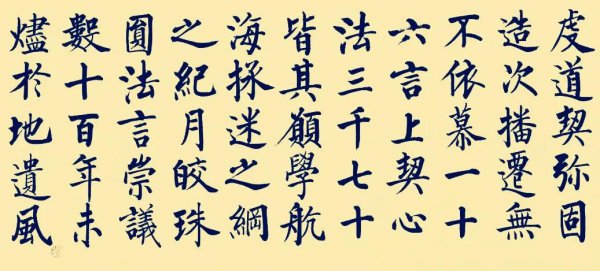 虔道契弥固
造次播遷無
不依慕一十
六言上契心
法三千七十
皆其願學航
海拯迷之綱
之紀月皎珠
圓法言崇議
數十百年未
燼於地遺風